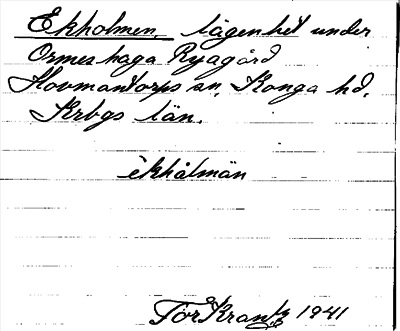 Ekholmen, lägenhet under
Ormeshaga Ryagård
Hovmantorps sn. Konga hd.
Krbgs län.
èkhålmän
Tor Krantz 1941